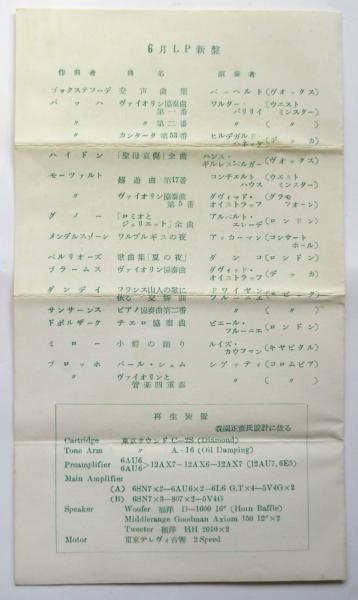 6月LP新盤
作曲者 曲名 演奏者
ブックステフーデ 交声曲集 ベッヘルト (ヴオックス)
バッハ ヴァイオリン協奏曲第一番 ワルター・バリリイ (ウエストミンスター)
〃 〃 第二番 〃 (〃)
〃 カンタータ第53番 ヒルデガルド・
ハイドン 「聖母哀傷」全曲 ハンス・ギルレスベルガー (ヴオックス)
モーツァルト 嬉遊曲 第17番 コンチェルトハウス (ウエストミンスター)
〃 ヴァイオリン協奏曲第5番 ダヴィッド・オイストラッフ (グラモフォーン)
グノー 「ロミオとジュリエット」全曲 アルベルト・エレーデ (ロンドン)
メンデルスゾーン ワルプルギスの夜 アッカーマン (コンサートホール)
ベルリオーズ 歌曲集「夏の夜」 ダンコ (ロンドン)
ブラームス ヴァイオリン協奏曲 ダヴィッド・オイストラッフ (デッカ)
ダンディ フランス山人の歌に依る交響曲 ドワイヤン フルニエ
サンサーンス ピアノ協奏曲第二番 〃 (〃)
ドボルザーク チェロ協奏曲 ピエール・フルーニエ (ロンドン)
ミロー 小鰐の踊り ルイズ・カウフマン (キヤピタル)
ブロッホ バール・シェム シゲッティ (コロムビア)
〃 ヴァイオリンと管楽四重奏 〃 (〃)
再生装置
森園正彦氏設計に依る
Cartridge 東京サウンド C-2S (Diamond)
Tone Arm 〃 A-16 (Oil Damping)
Preamplifier 6AU6 6AU6>12AX7-12AX6-12AX7 (12AU7, 6E5)
Main Amplifier
(A) 6SN7×2-6AU6×2-6L6 G.T×4-5V4G×2
(B) 6SN7×3-807×2-5V4G
Speaker Woofer 福洋 D-1600 16" (Horn Baffle)
Middlerange Goodman Axiom 150 12"×2
Tweeter 福洋 HH 2010×2
Motor 東京テレヴィ音響 2 Speed